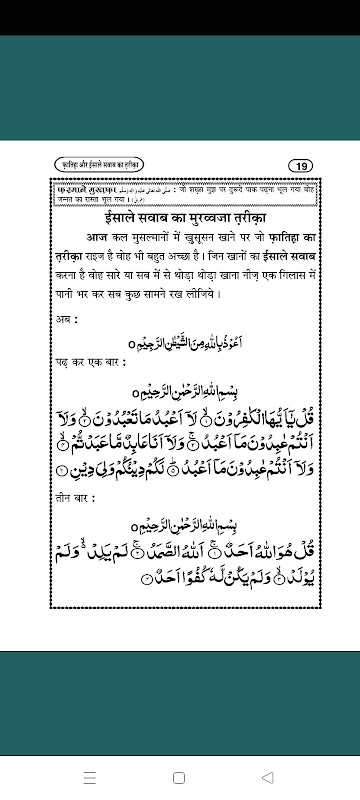 फ़ातिहा और ईसाले सवाब का तरीक़ा
19
फ़रमाने मुस्तफ़ा صَلَّى اللّٰهُ تَعَالٰى عَلَيْهِ وَاٰلِهٖ وَسَلَّم : जो शख़्स मुझ पर दुरूदे पाक पढ़ना भूल गया वोह
जन्नत का रास्ता भूल गया ।
ईसाले सवाब का मुरव्वजा तरीक़ा
आज कल मुसल्मानों में खुसूसन खाने पर जो फ़ातिहा का
तरीक़ा राइज है वोह भी बहुत अच्छा है । जिन खानों का ईसाले सवाब
करना है वोह सारे या सब में से थोड़ा थोड़ा खाना नीज़ एक गिलास में
पानी भर कर सब कुछ सामने रख लीजिये ।
अब :
اَعُوْذُ بِاللّٰهِ مِنَ الشَّيْطٰنِ الرَّجِيْمِ ○
पढ़ कर एक बार :
بِسْمِ اللّٰهِ الرَّحْمٰنِ الرَّحِيْمِ ○
قُلْ يٰۤاَيُّهَا الْكٰفِرُوْنَ ۙ﴿۱﴾ لَاۤ اَعْبُدُ مَا تَعْبُدُوْنَ ۙ﴿۲﴾ وَلَاۤ
اَنْتُمْ عٰبِدُوْنَ مَاۤ اَعْبُدُ ۚ﴿۳﴾ وَلَاۤ اَنَا عَابِدٌ مَّا عَبَدْتُّمْ ۙ﴿۴﴾
وَلَاۤ اَنْتُمْ عٰبِدُوْنَ مَاۤ اَعْبُدُ ؕ﴿۵﴾ لَكُمْ دِيْنُكُمْ وَلِىَ دِيْنِ ﴿۶﴾
तीन बार :
بِسْمِ اللّٰهِ الرَّحْمٰنِ الرَّحِيْمِ ○
قُلْ هُوَ اللّٰهُ اَحَدٌ ۚ﴿۱﴾ اَللّٰهُ الصَّمَدُ ۚ﴿۲﴾ لَمْ يَلِدْ ۙ وَلَمْ
يُوْلَدْ ۙ﴿۳﴾ وَلَمْ يَكُنْ لَّهٗ كُفُوًا اَحَدٌ ﴿۴﴾